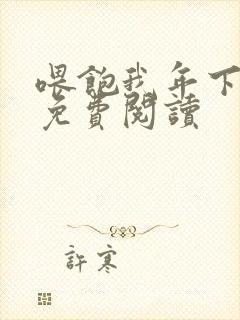 喂飽我年下
免費閱讀
許寒